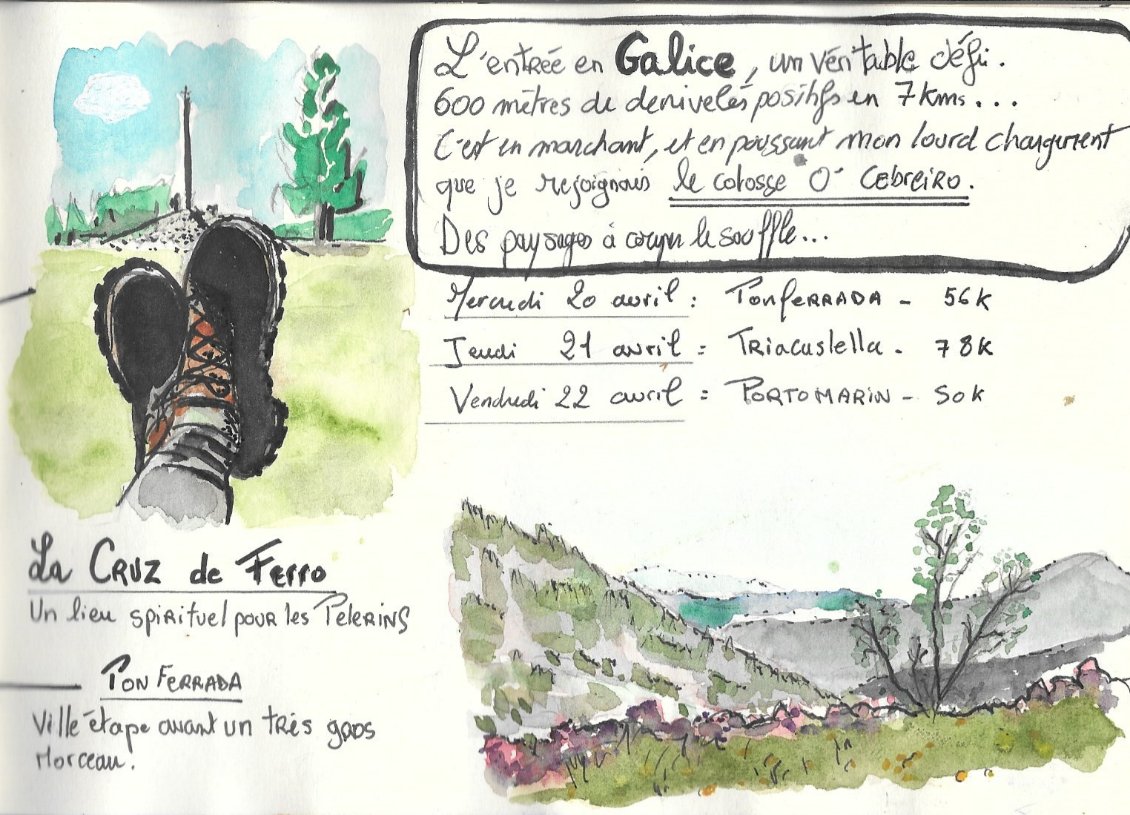 L'entrée en Galice, un véritable défi.
600 mètres de denivelés positifs en 7 kms...
C'est en marchant, et en poussant mon lourd chargement
que je rejoignais le colosse O' CEBREIRO.
Des paysages à couper le souffle...
Mercredi 20 avril : PONFERRADA - 56K
Jeudi 21 avril = TRIACASTELLA - 78K
Vendredi 22 avril = PORTOMARIN - 50K
La CRUZ de Ferro
Un lieu spirituel pour les Pélerins
PONFERRADA
Ville étape avant un très gros
Morceau.